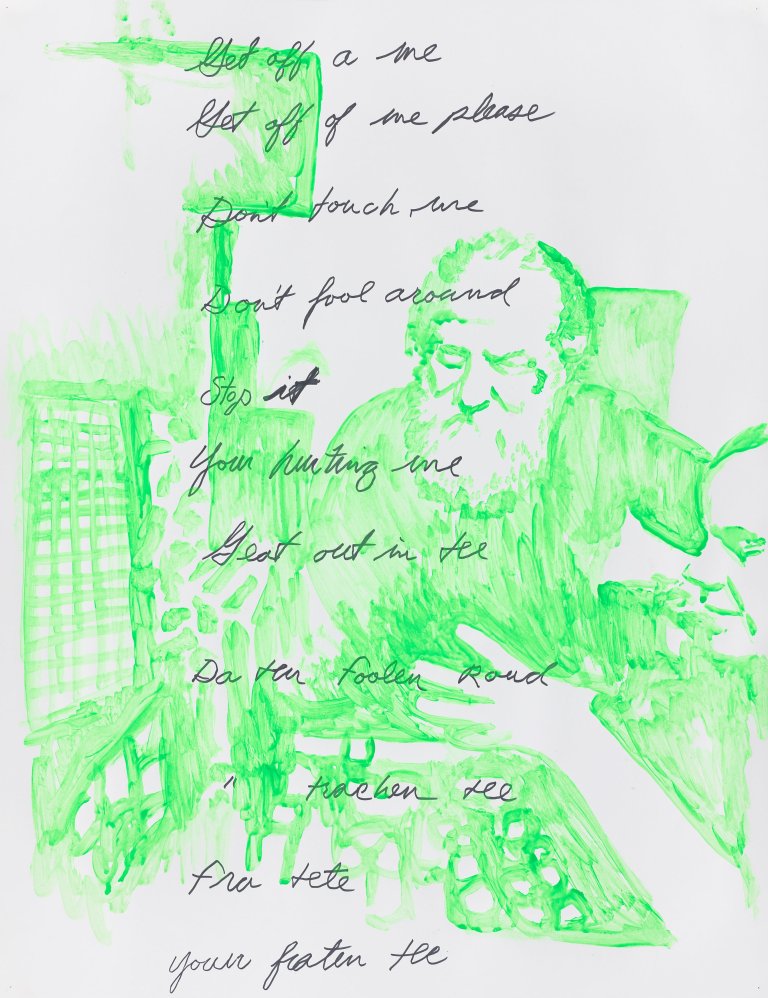 Get off a me
Get off of me please
Don't touch me
Don't fool around
Stop it
Your hurting me
Geat out in tee
Da ten foolen Roud
" trachen tee
Fra tete
your fraten tee